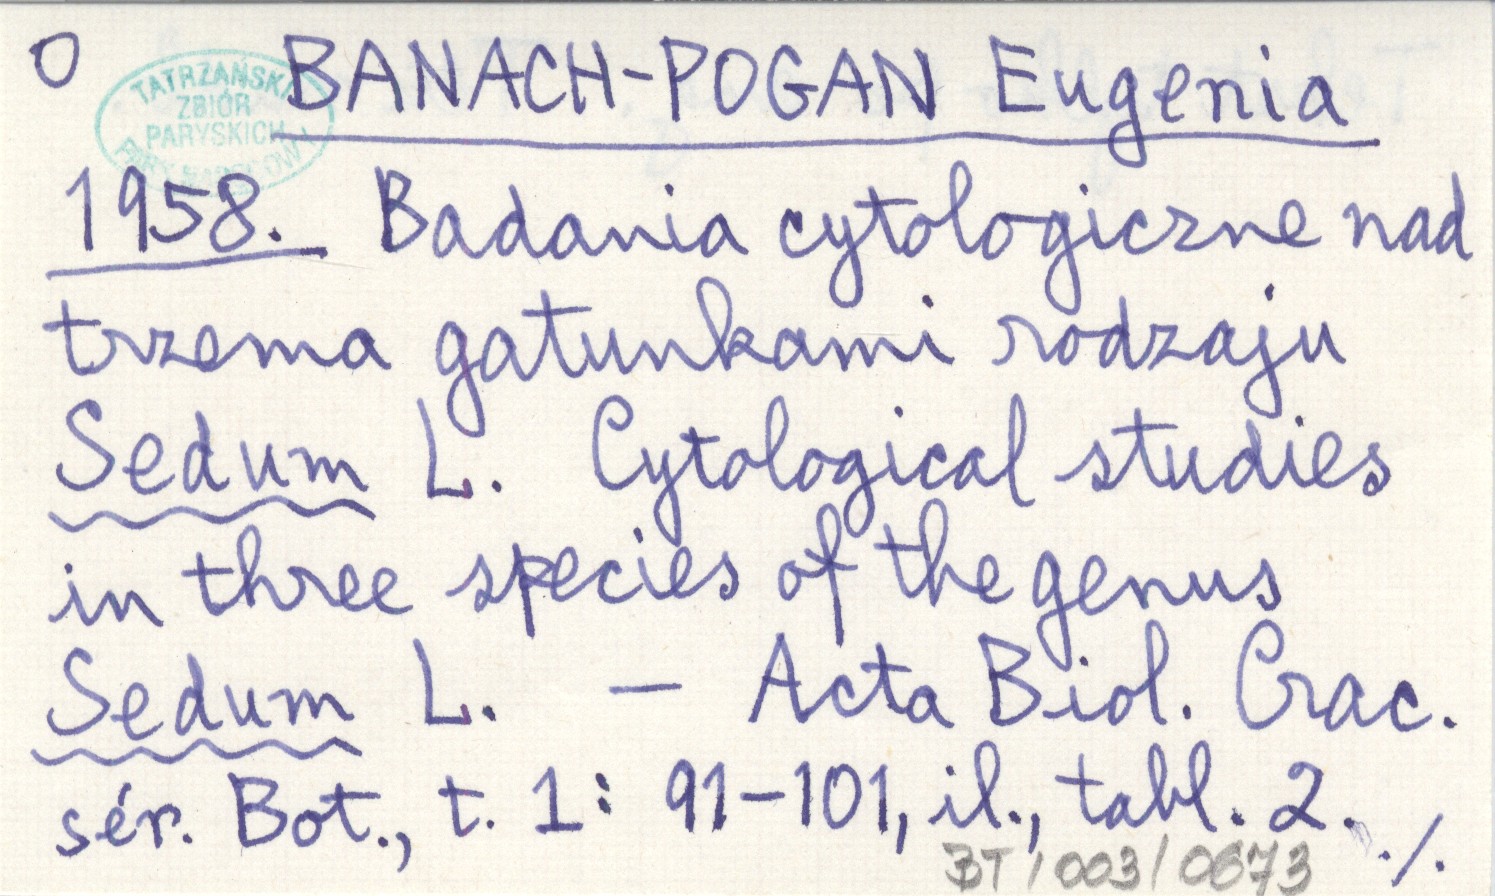 O BANACH-POGAN Eugenia
TATRZAŃSKI
ZBIÓR
PARYSKICH
PARK NARODOWY
1958. Badania cytologiczne nad
trzema gatunkami rodzaju
Sedum L. Cytological studies
in three species of the genus
Sedum L. — Acta Biol. Crac.
sér. Bot., t. 1: 91-101, il., tabl. 2. ./.
BT/003/0673